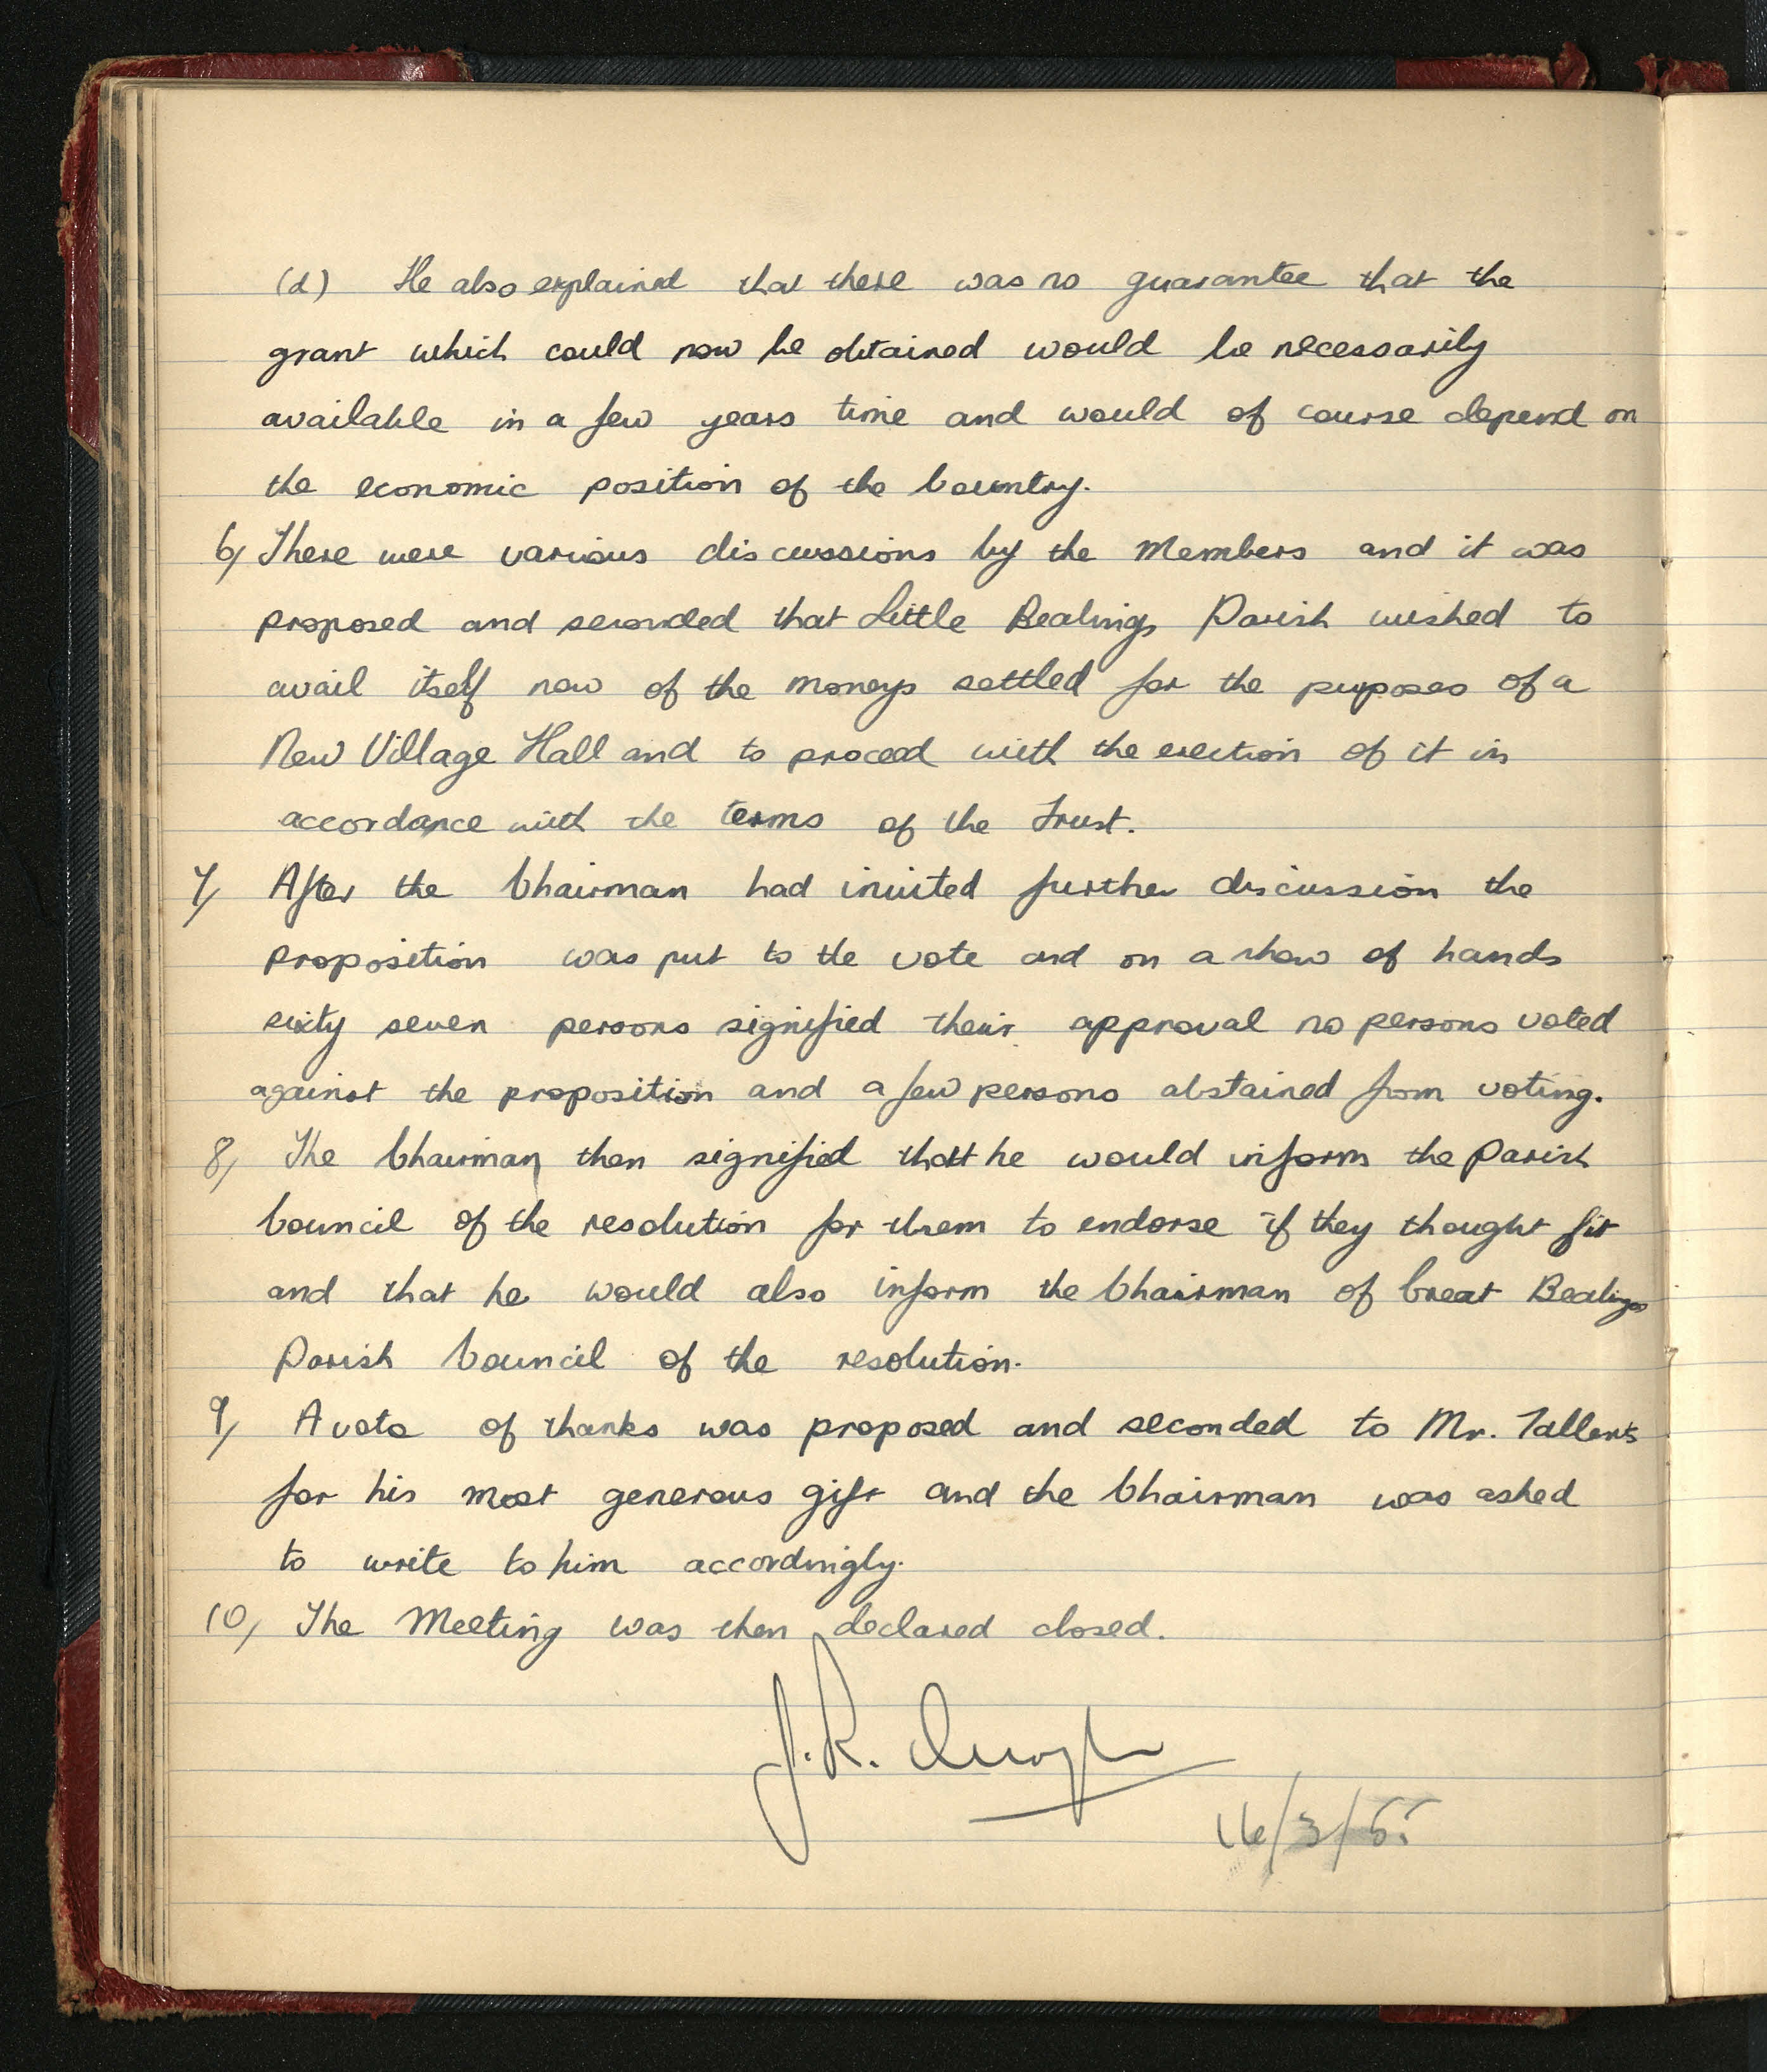 (d) He also explained that there was no guarantee that the
grant which could now be obtained would be necessarily
available in a few years time and would of course depend on
the economic position of the Country.
6, There were various discussions by the Members and it was
proposed and seconded that Little Bealings Parish wished to
avail itself now of the moneys settled for the purposes of a
New Village Hall and to proceed with the erection of it in
accordance with the terms of the Trust.
7, After the Chairman had invited further discussion the
proposition was put to the vote and on a show of hands
sixty seven persons signified their approval no persons voted
against the proposition and a few persons abstained from voting.
8, The Chairman then signified that he would inform the Parish
Council of the resolution for them to endorse if they thought fit
and that he would also inform the Chairman of Great Bealings
Parish Council of the resolution.
9, A vote of thanks was proposed and seconded to Mr. Tallents
for his most generous gift and the Chairman was asked
to write to him accordingly.
10, The Meeting was then declared closed.
J.R.
16/3/65